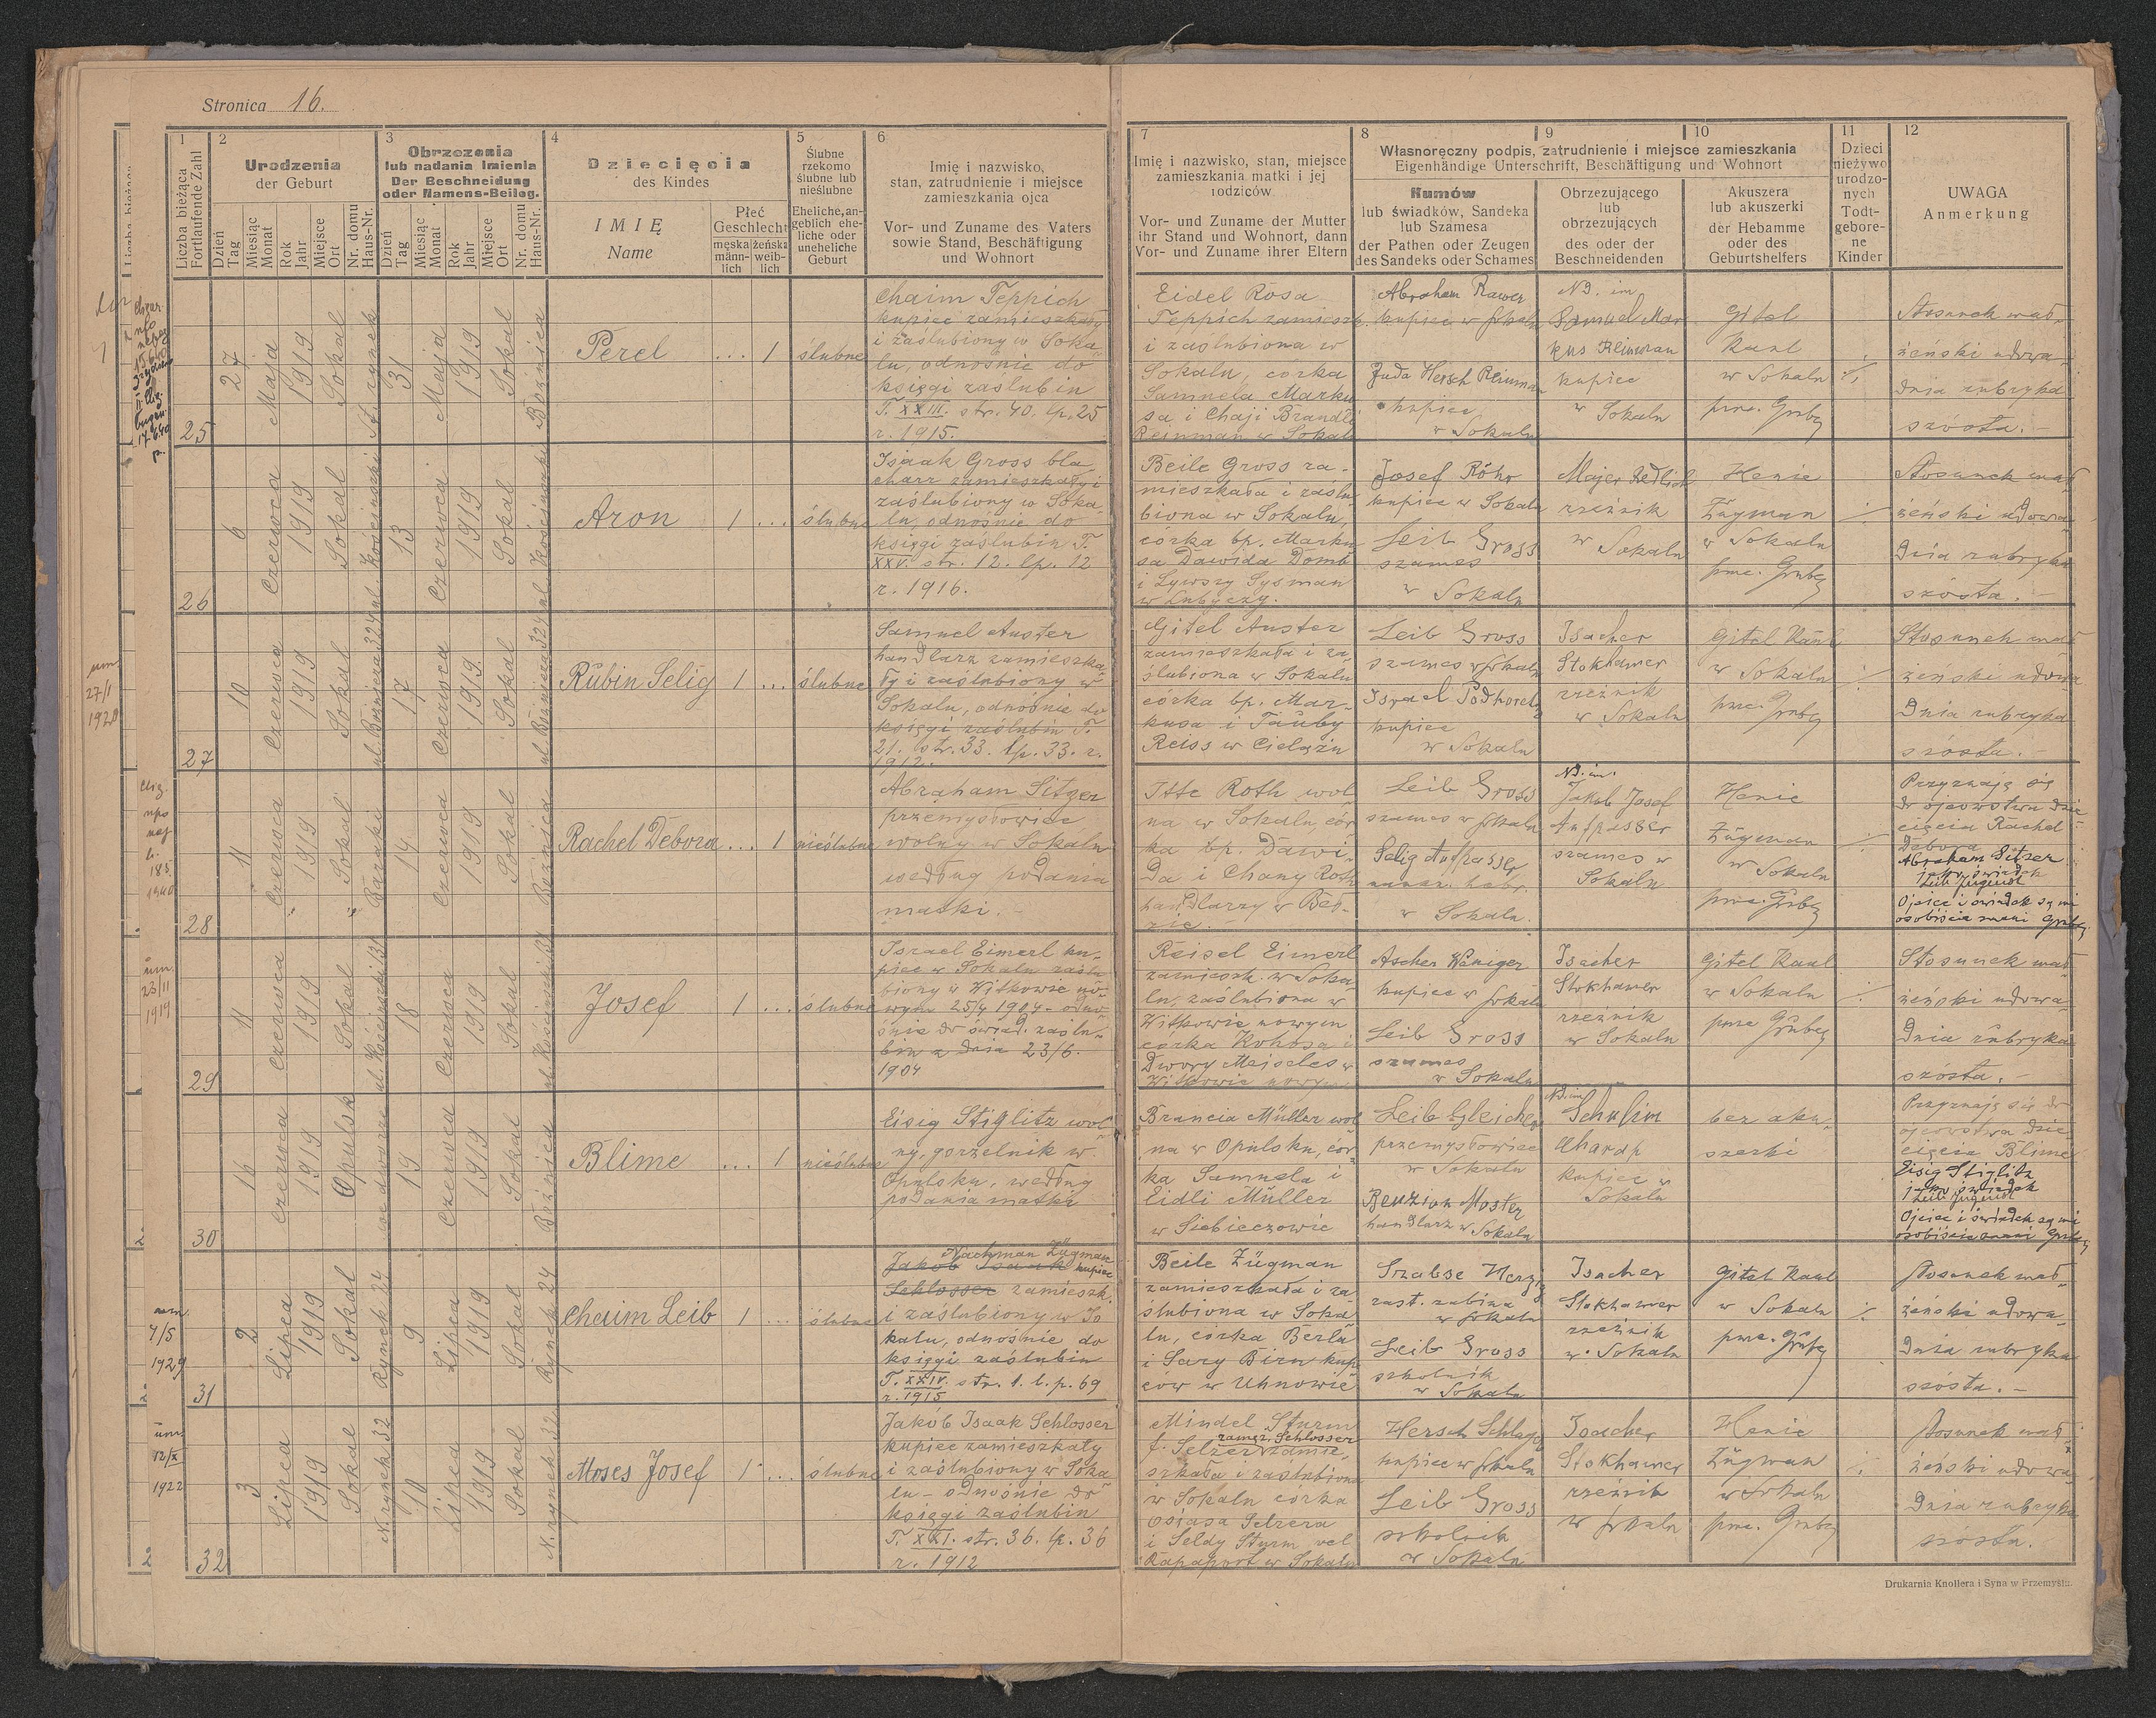 Stronica 16.
1
Liczba bieżąca
Fortlaufende Zahl
2
Urodzenia
der Geburt
Dzień
Tag
Miesiąc
Monat
Rok
Jahr
Miejsce
Ort
Nr. domu
Haus-Nr.
3
Obrzezania
lub nadania Imienia
Der Beschneidung
oder Namens-Beileg.
Dzień
Tag
Miesiąc
Monat
Rok
Jahr
Miejsce
Ort
Nr. domu
Haus-Nr.
4
Dziecięcia
des Kindes
IMIĘ
Name
Płeć
Geschlecht
męska
männ-
lich
żeńska
weib-
lich
5
Ślubne
rzekomo
ślubne lub
nieślubne
Eheliche, an-
geblich ehe-
liche oder
uneheliche
Geburt
6
Imię i nazwisko,
stan, zatrudnienie i miejsce
zamieszkania ojca
Vor- und Zuname des Vaters
sowie Stand, Beschäftigung
und Wohnort
7
Imię i nazwisko, stan, miejsce
zamieszkania matki i jej
rodziców.
Vor- und Zuname der Mutter
ihr Stand und Wohnort, dann
Vor- und Zuname ihrer Eltern
8
9
10
Własnoręczny podpis, zatrudnienie i miejsce zamieszkania
Eigenhändige Unterschrift, Beschäftigung und Wohnort
Kumów
lub świadków, Sandeka
lub Szamesa
der Pathen oder Zeugen
des Sandeks oder Schames
Obrzezującego
lub
obrzezujących
des oder der
Beschneidenden
Akuszera
lub akuszerki
der Hebamme
oder des
Geburtshelfers
11
Dzieci
nieżywo
urodzo-
nych
Todt-
gebore-
ne
Kinder
12
UWAGA
Anmerkung
25
27
Maja
1919
Sokal
St. rynek
31
Maja
1919
Sokal
Bożnica
Perel
... 1
ślubne
Chaim Teppich
kupiec zamieszkały
i zaślubiony w Soka-
lu, odnośnie do
księgi zaślubin
T. XXIII. str. 40. lp. 25
r. 1915.
Eidel Rosa
Teppich zamieszk.
i zaślubiona w
Sokalu, córka
Samuela Marku
sa i Chaji Brandli
Reinman w Sokalu
Abraham Rawer
kupiec w Sokalu
Juda Hersch Reinman
kupiec
w Sokalu
ND. im.
Samuel Mar
kus Reinman
kupiec
w Sokalu
Gitel
Kaul
w Sokalu
prac. Gruber
Stosunek mał-
żeński udowa-
dnia rubryka
szósta.
26
6
Czerwca
1919
Sokal
ul. Kościuszki 324
13
Czerwca
1919
Sokal
ul. Kościuszki 324
Aron
1 ...
ślubne
Isaak Gross bla-
charz zamieszkały i
zaślubiony w Soka-
lu, odnośnie do
księgi zaślubin T.
XXV. str. 12. lp. 12
r. 1916.
Beile Gross za-
mieszkała i zaślu
biona w Sokalu,
córka bp. Marku
sa Dawida Domb
i Lywszy Sysman
w Lubyczy.
Josef Röhr
kupiec w Sokalu
Leib Gross
szames
w Sokalu
Majer Redlich
rzeźnik
w Sokalu
Henie
Zügman
w Sokalu
prac. Gruber
Stosunek mał
żeński udowa-
dnia rubryka
szósta.
27
10
Czerwca
1919
Sokal
ul. Bożnica
17
Czerwca
1919
Sokal
ul. Bożnica
Rubin Selig
1 ...
ślubne
Samuel Auster
handlarz zamieszka-
ły i zaślubiony w
Sokalu, odnośnie do
księgi zaślubin T.
21. str. 33. lp. 33. r.
1912.
Gitel Auster
zamieszkała i za
ślubiona w Sokalu
córka bp. Mar-
kusa i Tauby
Reiss w Cielążu
Leib Gross
szames w Sokalu
Israel Podhoretz
kupiec
w Sokalu
Isacher
Stokhamer
rzeźnik
w Sokalu
Gitel Kaul
w Sokalu
prac. Gruber
Stosunek mał
żeński udowa
dnia rubryka
szósta.
28
11
Czerwca
1919
Sokal
Baraki
14
Czerwca
1919
Sokal
Bożnica
Rachel Debora
... 1
nieślubne
Abraham Sitzer
przemysłowiec
wolny w Sokalu
według podania
matki.
Itte Roth wol
na w Sokalu, cór
ka bp. Dawi-
da i Chany Roth
handlarzy w Beł-
zie.
Leib Gross
szames w Sokalu
Selig Aufpasser
w Sokalu.
ND. im.
Jakub Josef
Aufpasser
szames w
Sokalu
Henie
Zügman
w Sokalu
prac. Gruber
Przyznaję się
do ojcowstwa dzie-
cięcia Rachel
Debora
Abraham Sitzer
jako świadek
Leib Jugend
Ojciec i świadek są mi
osobiście znani Gruber
29
11
Czerwca
1919
Sokal
ul. Kościuszki 131
18
Czerwca
1919
Sokal
ul. Kościuszki 131
Josef
1 ...
ślubne
Israel Eimerl ku-
piec w Sokalu zaślu
biony w Witkowie no-
wym 25/4 1904 - odno-
śnie do świad. zaślu-
bin z dnia 23/6.
1904
Reisel Eimerl
zamieszk. w Soka-
lu, zaślubiona w
Witkowie nowym
córka Kohosa i
Dwory Mejseles w
Witkowie nowym
Ascher Waniger
kupiec w Sokalu
Leib Gross
szames
w Sokalu
Isacher
Stokhamer
rzeźnik
w Sokalu
Gitel Kaul
w Sokalu
prac Gruber
Stosunek mał-
żeński udowa-
dnia rubryka
szósta.
30
16
Czerwca
1919
Opulsk
we dworze
19
Czerwca
1919
Sokal
Bożnica
Blime
... 1
nieślubne
Eisig Stiglitz wol-
ny, gorzelnik w
Opulsku, według
podania matki
Brancia Müller wol
na w Opulsku, cór-
ka Samuela i
Eidli Müller
w Siebieczowie
Leib Gleicher
przemysłowiec
w Sokalu
Benzion Moster
handlarz w Sokalu
ND. im.
Schulim
Charap
kupiec w
Sokalu
bez aku-
szerki
Przyznaję się do
ojcowstwa dzie-
cięcia Blime
Eisig Stiglitz
jako świadek
Leib Jugend
Ojciec i świadek są mi
osobiście znani Gruber
31
2
Lipca
1919
Sokal
Rynek 24
9
Lipca
1919
Sokal
Rynek 24
Chaim Leib
1 ...
ślubne
Nachman Zügman
Jakób Isaak kupiec
Schlosser zamieszk.
i zaślubiony w So
kalu, odnośnie do
księgi zaślubin
T. XXIV. str. 1. l. p. 69
r. 1915
Beile Zügman
zamieszkała i za
ślubiona w Soka
lu, córka Berla
i Sary Birn kup-
ców w Uhnowie
Szabse Herzig
zast. rabina
w Sokalu
Leib Gross
szkolnik
w Sokalu
Isacher
Stokhamer
rzeźnik
w Sokalu
Gitel Kaul
w Sokalu
prac. Gruber
Stosunek mał-
żeński udowa-
dnia rubryka
szósta.
32
3
Lipca
1919
Sokal
N. rynek 32
10
Lipca
1919
Sokal
N. rynek 32
Moses Josef
1 ...
ślubne
Jakób Isaak Schlosser
kupiec zamieszkały
i zaślubiony w Soka
lu - odnośnie do
księgi zaślubin
T. XXI. str. 36. lp. 36
r. 1912
Mindel Sturm
zamęż. Schlosser
f. Selzer zamie-
szkała i zaślubiona
w Sokalu córka
Osiasa Selzera
i Seldy Sturm vel
Rapaport w Sokalu
Hersch Schlager
kupiec w Sokalu
Leib Gross
szkolnik
w Sokalu
Isacher
Stokhamer
rzeźnik
w Sokalu
Henie
Zügman
w Sokalu
prac. Gruber
Stosunek mał-
żeński udowa-
dnia rubryka
szósta.
um.
27/1
1920
um.
23/11
1919
um.
4/5
1929
um.
12/X
1922
Drukarnia Knollera i Syna w Przemyślu.